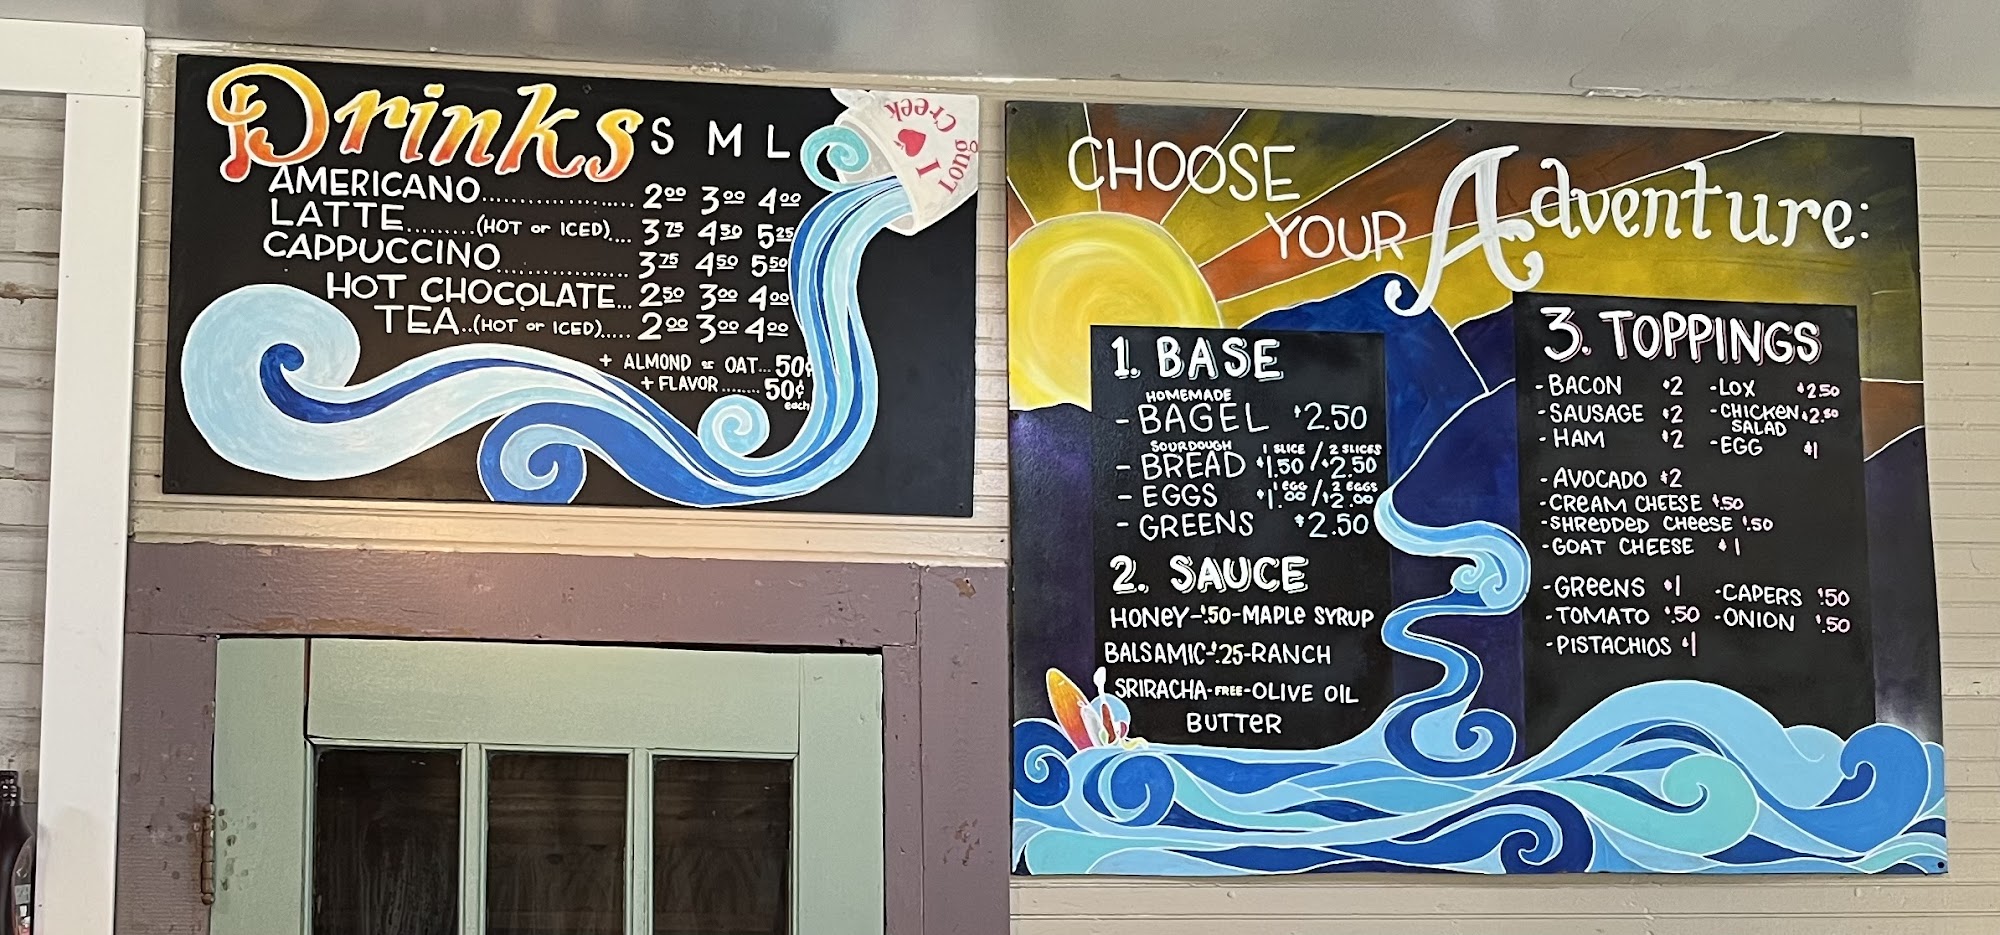 Drinks S M L
AMERICANO..................... 2.00 3.00 4.00
LATTE.........(HOT or ICED).... 3.75 4.50 5.25
CAPPUCCINO.................. 3.75 4.50 5.50
HOT CHOCOLATE... 2.50 3.00 4.00
TEA..(HOT or ICED)..... 2.00 3.00 4.00
+ ALMOND or OAT... 50¢
+ FLAVOR........ 50¢
each
I ♥ Long Creek
CHOOSE
YOUR Adventure:
1. BASE
HOMEMADE
- BAGEL $2.50
SOURDOUGH 1 SLICE / 2 SLICES
- BREAD $1.50 / $2.50
1 EGG 2 EGGS
- EGGS $1.00 / $2.00
- GREENS $2.50
2. SAUCE
HONEY-$.50-MAPLE SYRUP
BALSAMIC-$.25-RANCH
SRIRACHA-FREE-OLIVE OIL
BUTTER
3. TOPPINGS
- BACON $2
- SAUSAGE $2
- HAM $2
- LOX $2.50
- CHICKEN $2.50
SALAD
- EGG $1
- AVOCADO $2
- CREAM CHEESE $.50
- SHREDDED CHEESE $.50
- GOAT CHEESE $1
- GREENS $1
- TOMATO $.50
- PISTACHIOS $1
- CAPERS $.50
- ONION $.50